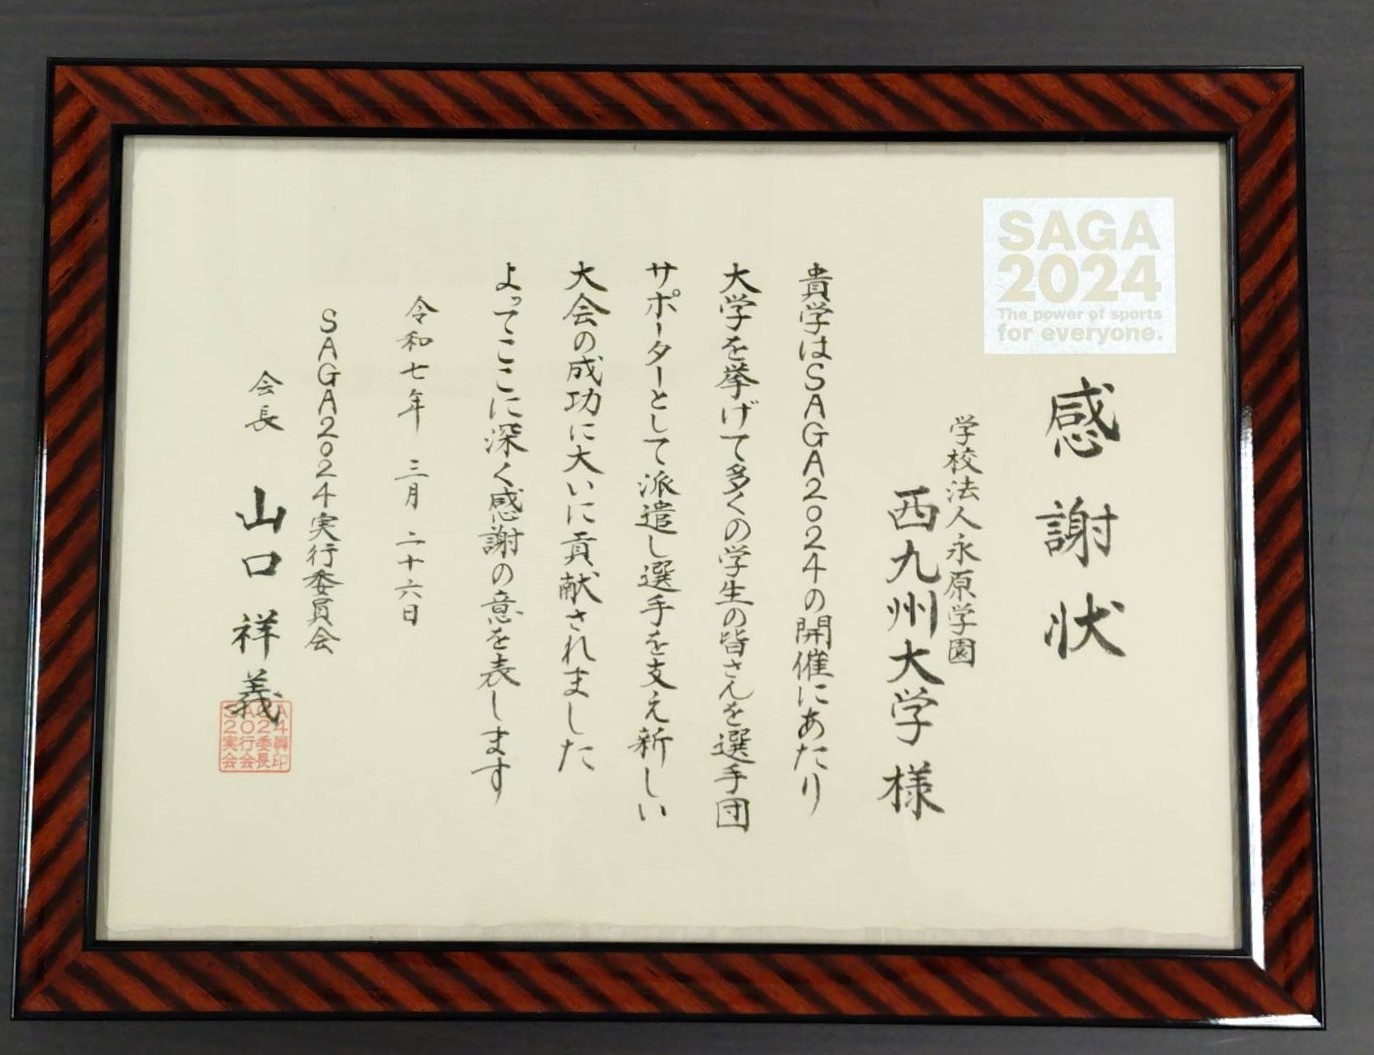 SAGA
2024
The power of sports
for everyone.
感謝状
学校法人永原学園
西九州大学様
貴学はSAGA2024の開催にあたり
大学を挙げて多くの学生の皆さんを選手団
サポーターとして派遣し選手を支え新しい
大会の成功に大いに貢献されました
よってここに深く感謝の意を表します
令和七年 三月 二十六日
SAGA2024実行委員会
会長 山口祥義